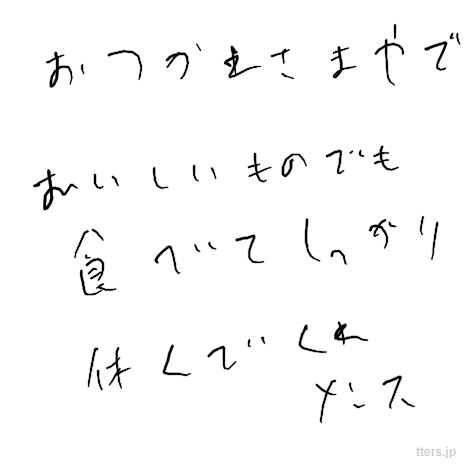 おつかまさまやで
おいしいものでも
食べてしっかり
休くでくれ
メンス
tters.jp